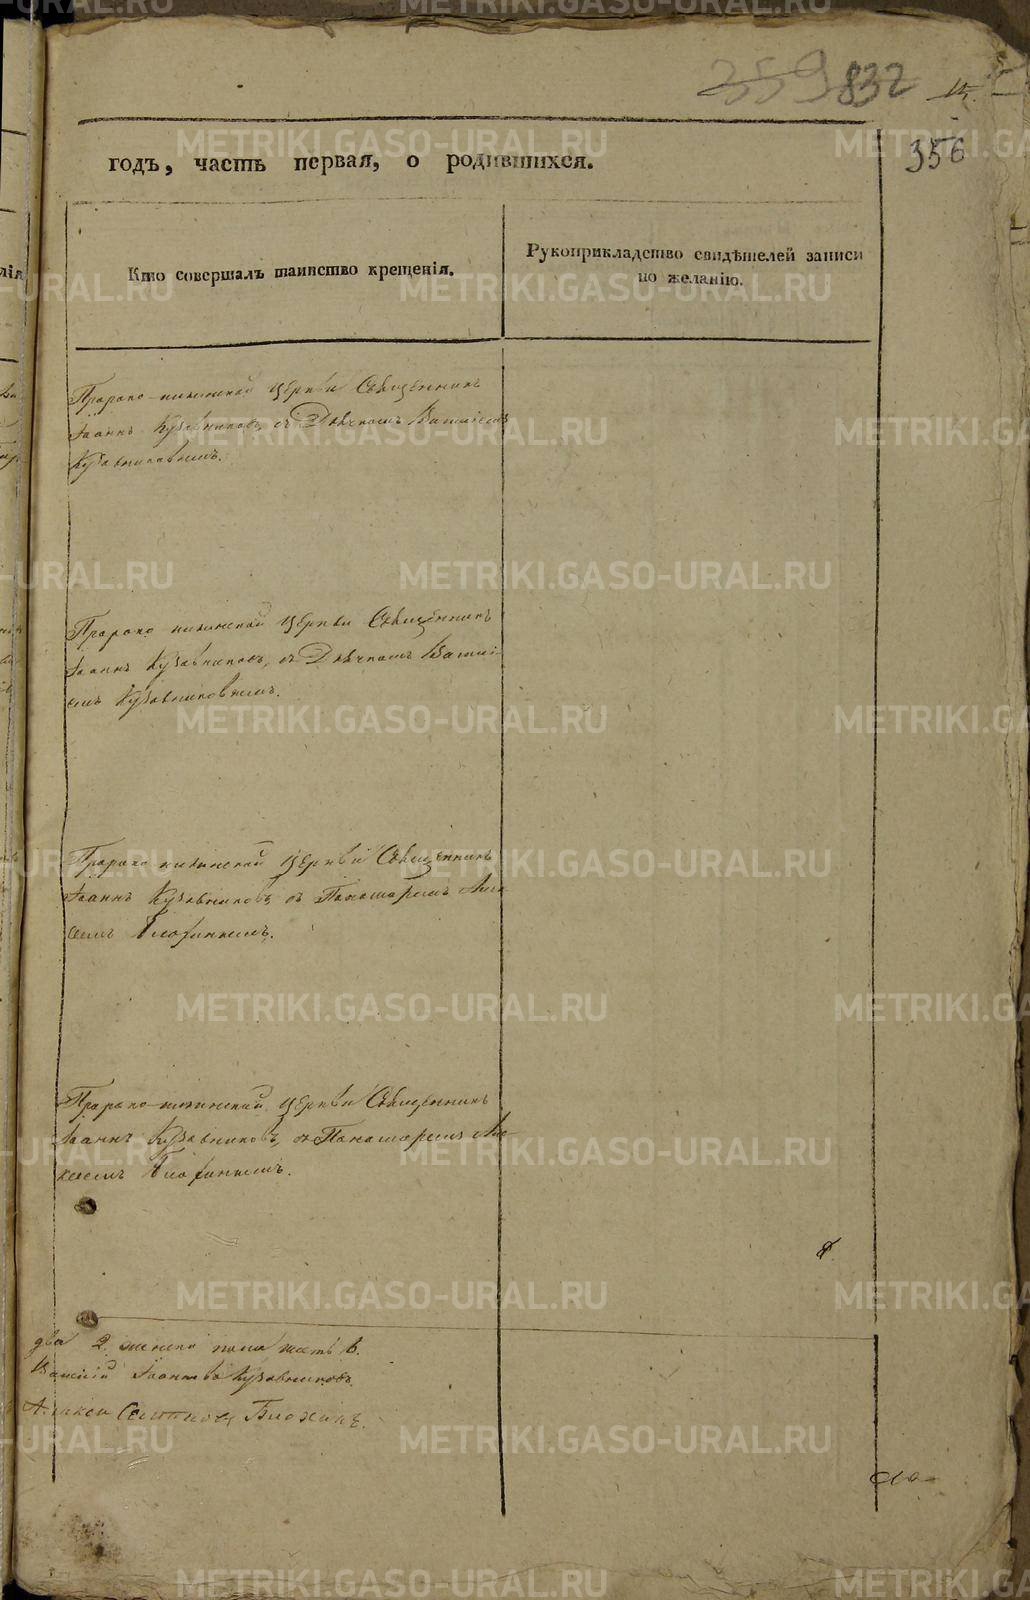 359 832
356
годъ, часть первая, о родившихся.
Кто совершалъ таинство крещенія.
Рукоприкладство свидѣтелей записи
по желанію.
Пророко-илинской церкви Священникъ
Іоаннъ Кузовниковъ, съ Дьячкомъ Василіемъ
Кузовниковымъ.
Пророко илинской церкви Священникъ
Іоаннъ Кузовниковъ, съ Дьячкомъ Васілі-
емъ Кузовниковымъ.
Пророко илинской церкви Священникъ
Іоаннъ Кузовниковъ, съ Пономаремъ Алек
сеемъ Блохинымъ.
Пророко-илинской церкви Священникъ
Іоаннъ Кузовниковъ, съ Пономаремъ Але-
ксеемъ Блохинымъ.
два 2. женска пола шесть 6.
Василій Іоанновъ Кузовниковъ
Алексей Блохинъ.
METRIKI.GASO-URAL.RU